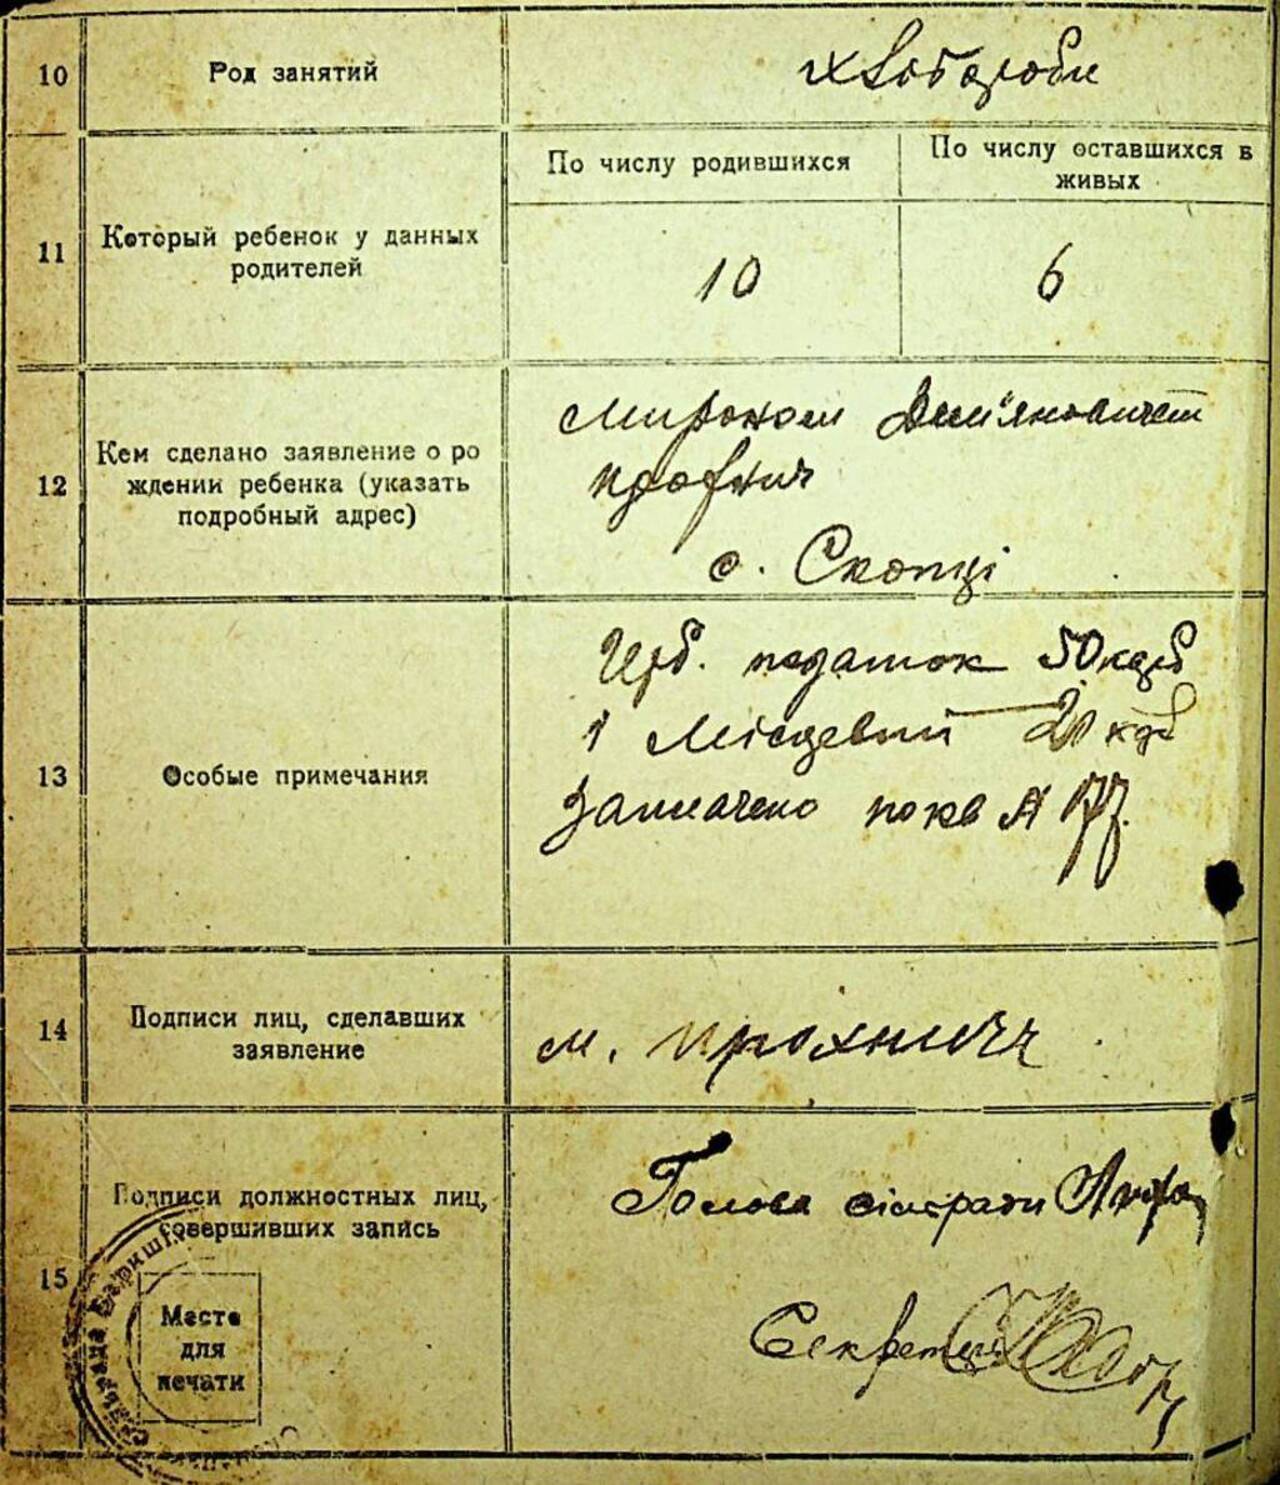 10
Род занятий
хлібороби
11
Который ребенок у данных
родителей
По числу родившихся
По числу оставшихся в
живых
10
6
12
Кем сделано заявление о ро
ждении ребенка (указать
подробный адрес)
Мироном Дем'яновичем
с. Скопці
13
Особые примечания
Герб. податок 50 карб
1 Місцевий — 20 карб
Зазначено по кв № 177.
14
Подписи лиц, сделавших
заявление
м. Прохнич
15
Подписи должностных лиц,
совершивших запись
Место
для
печати
Голова сільради
Секретар